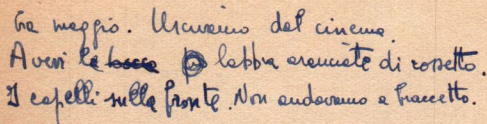 Era maggio. Uscivamo dal cinema.
Avevi le labbra aranciate di rossetto.
I capelli sulla fronte. Non andavamo a braccetto.